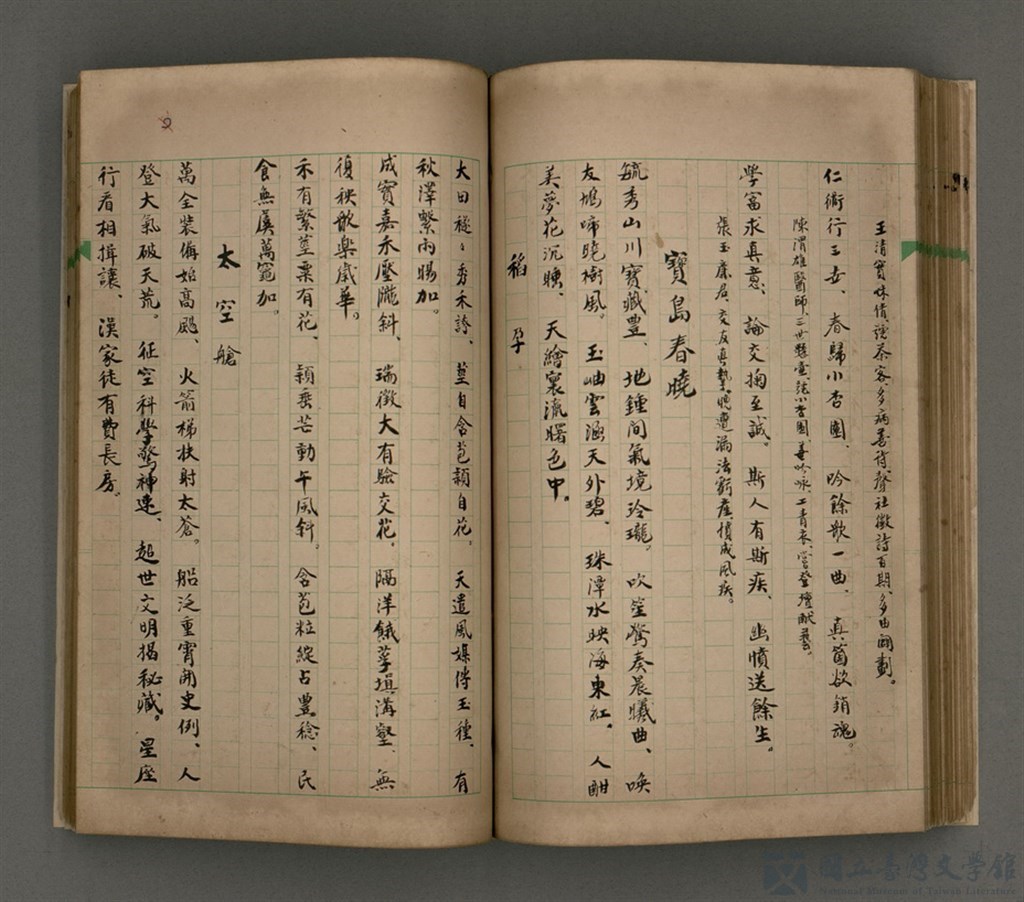 王清實昧債讀茶客多病善待聲社徵詩百期多由開劃。
仁術行三世、春歸小杏園、吟餘歌一曲、真箇欲銷魂。
陳渭雄醫師、三世懸壺號小杏園、善吟咏、工青衣、嘗登壇献藝。
學富求真意、論交掬至誠。斯人有斯疾、幽憤送餘生。
張玉 君、交友真摯、晚遭漏法 產、憤成風疾。
寶島春曉
毓秀山川寶藏豊、地鍾間氣境玲瓏。吹笙鶯奏晨曦曲、喚
友鳩啼曉樹風。玉岫雲涵天外碧、珠潭水映海東紅。人酣
美夢花沉睡、天繪裏流曙色中。
稻孕
大田穟〻秀禾誇、莖自含苞穎自花。天遣風媒傳玉種、有
秋澤繫雨暘加。
成實嘉禾壓隴斜、瑞徵大有驗交花、隔洋餓莩填溝壑、無
復秧歌樂歲華。
禾有繁莖粟有花、穎垂芒動午風斜。含苞粒綻占豊稔、民
食無虞萬竈加。
太空艙
萬全裝備始高颺、火箭梯扶射太蒼。船泛重霄開史例、人
登大氣破天荒。征空科學驚神速、超世文明揭秘藏。星座
行看相揖讓、漢家徒有費長房。
國立臺灣文學館
National Museum of Taiwan Literature